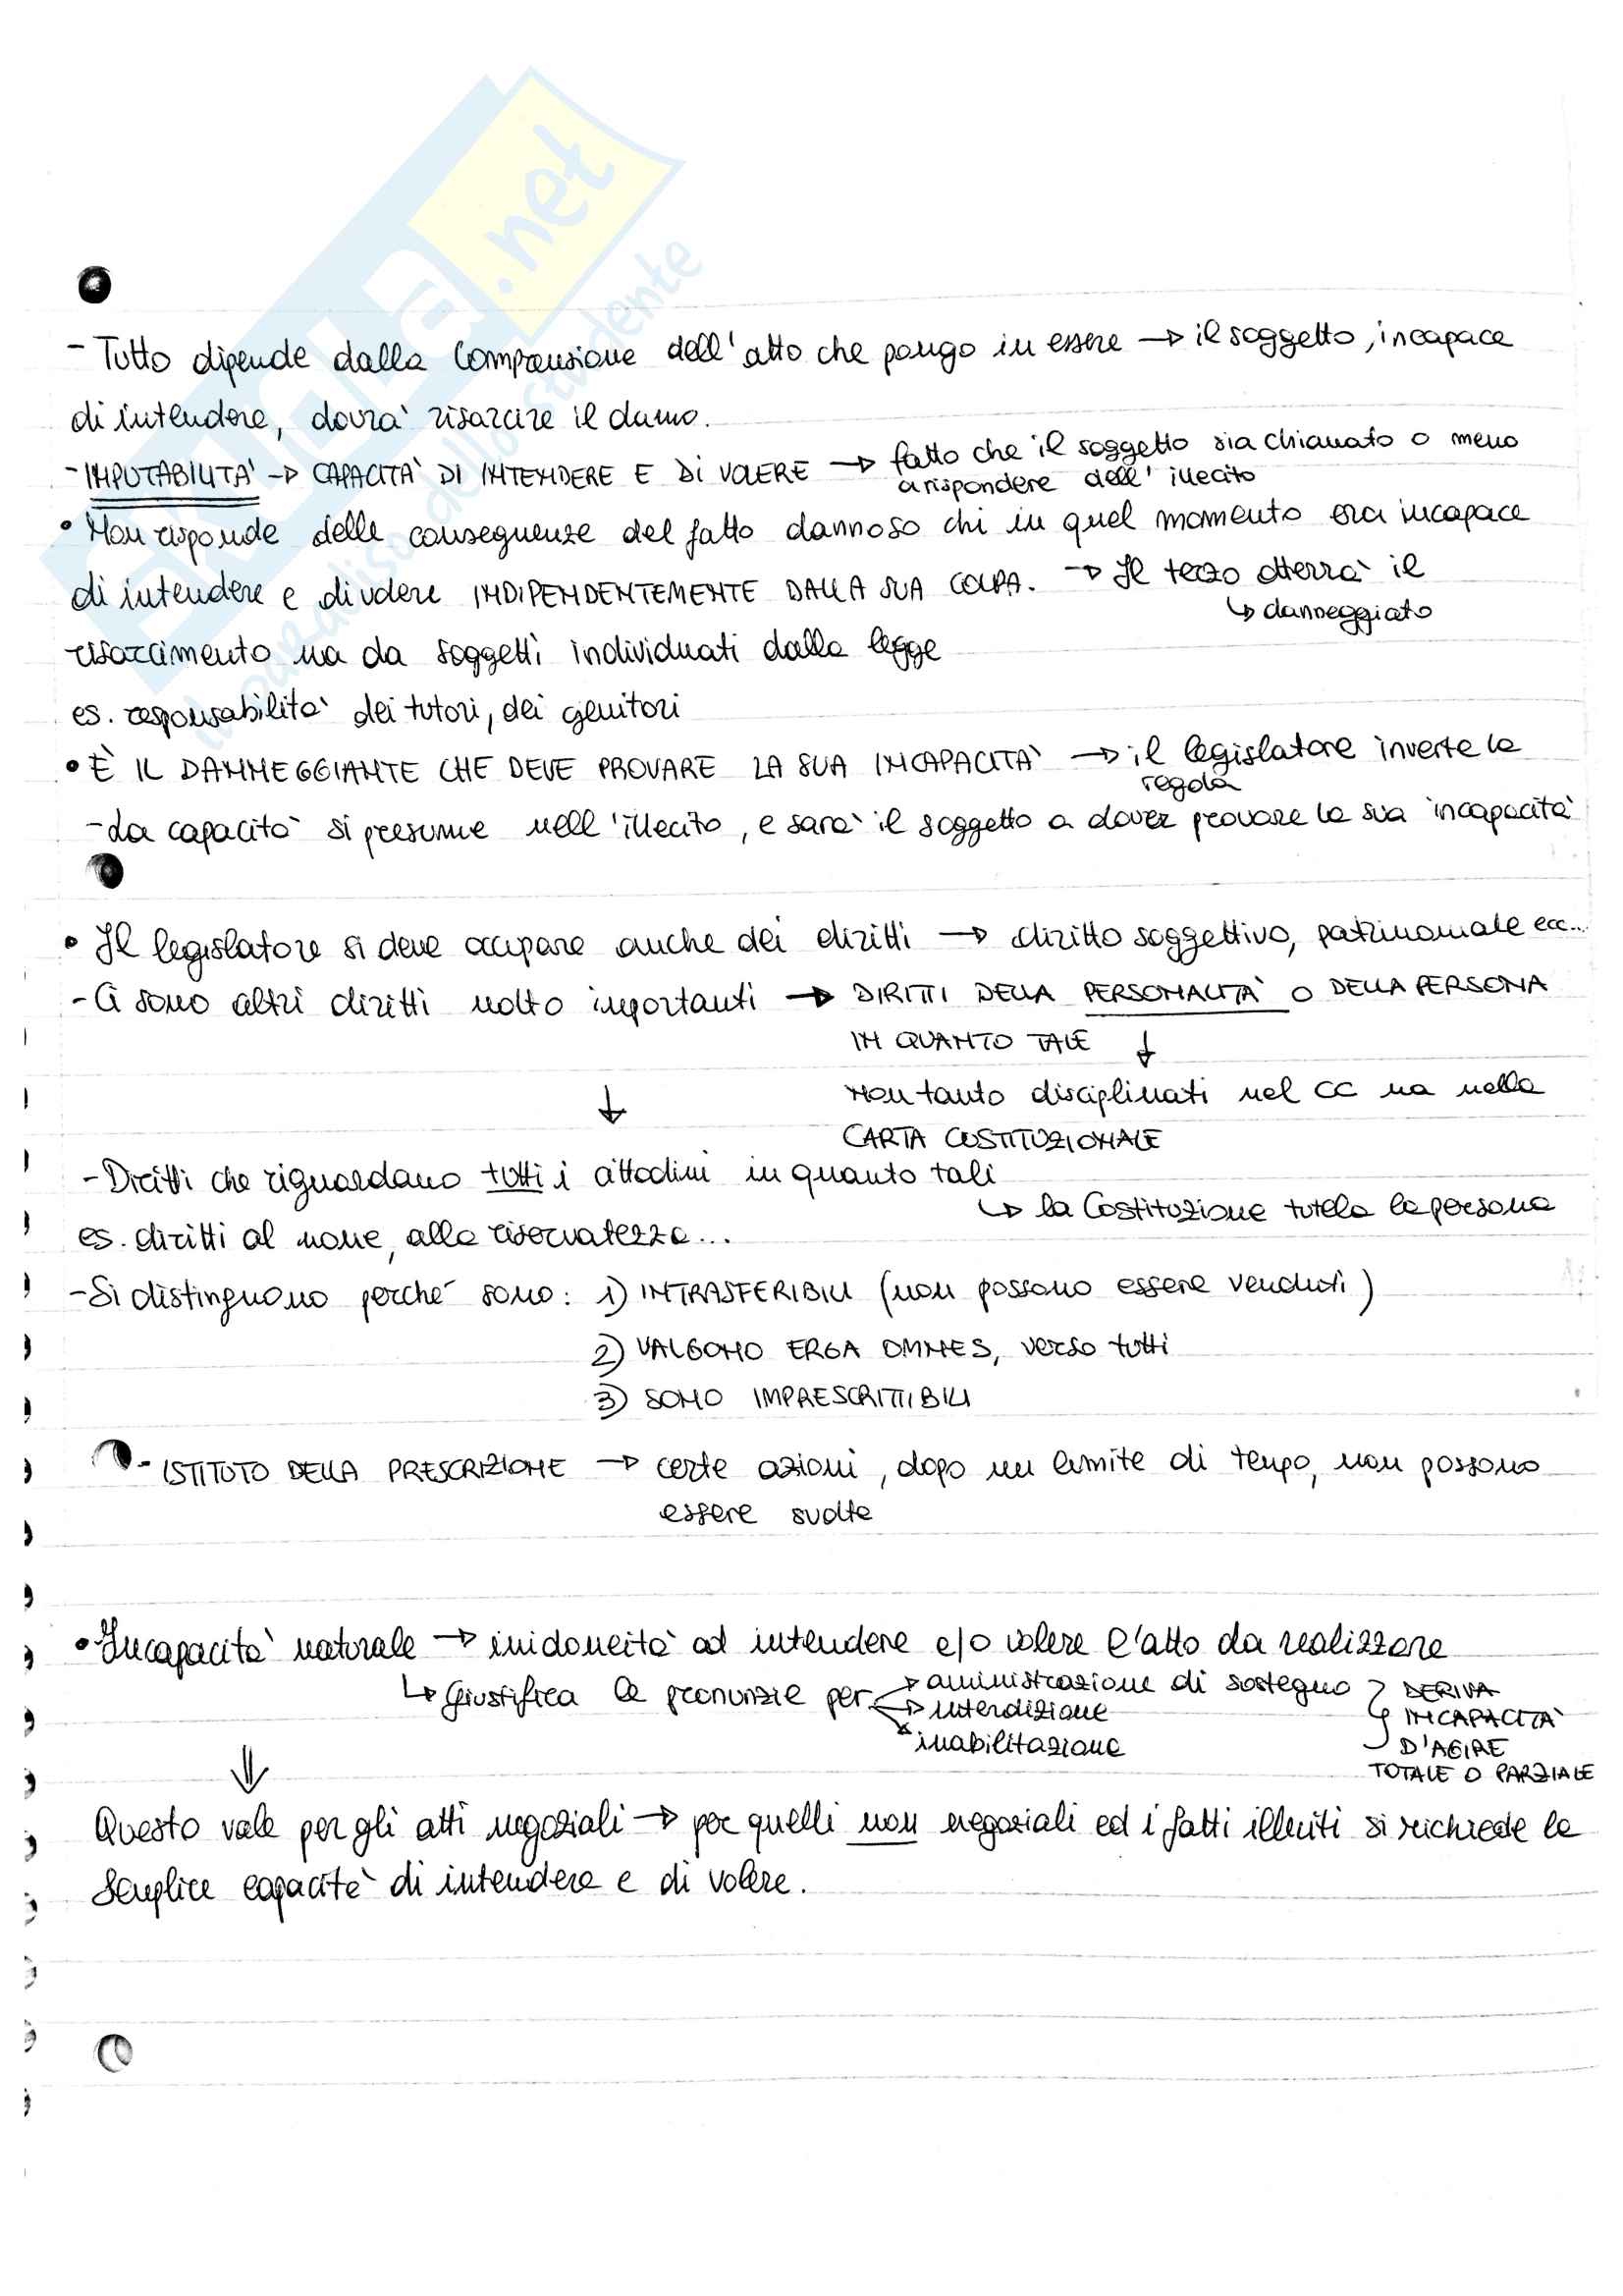 - Tutto dipende dalla comprensione dell'atto che pongo in essere → il soggetto, incapace
di intendere, dovrà risarcire il danno.
- IMPUTABILITÀ → CAPACITÀ DI INTENDERE E DI VOLERE → fatto che il soggetto sia chiamato o meno
a rispondere dell'illecito
• Non risponde delle conseguenze del fatto dannoso chi in quel momento era incapace
di intendere e di volere INDIPENDENTEMENTE DALLA SUA COLPA. → Il terzo otterrà il
↳ danneggiato
risarcimento ma da soggetti individuati dalla legge
es. responsabilità dei tutori, dei genitori
• È IL DANNEGGIANTE CHE DEVE PROVARE LA SUA INCAPACITÀ → il legislatore inverte la
regola
- La capacità si presume nell'illecito, e sarà il soggetto a dover provare la sua incapacità
• Il legislatore si deve occupare anche dei diritti → diritto soggettivo, patrimoniale ecc...
- Ci sono altri diritti molto importanti → DIRITTI DELLA PERSONALITÀ O DELLA PERSONA
IN QUANTO TALE ↓
Non tanto disciplinati nel CC ma nella
↓
CARTA COSTITUZIONALE
- Diritti che riguardano tutti i cittadini in quanto tali
↳ la Costituzione tutela la persona
es. diritti al nome, alla riservatezza...
- Si distinguono perché sono: 1) INTRASFERIBILI (non possono essere venduti)
2) VALGONO ERGA OMNES, verso tutti
3) SONO IMPRESCRITTIBILI
- ISTITUTO DELLA PRESCRIZIONE → certe azioni, dopo un limite di tempo, non possono
essere svolte
• Incapacità naturale → inidoneità ad intendere e/o volere l'atto da realizzare
↳ Giustifica le pronunzie per → amministrazione di sostegno DERIVA
→ interdizione INCAPACITÀ
→ inabilitazione D'AGIRE
TOTALE O PARZIALE
⇓
Questo vale per gli atti negoziali → per quelli non negoziali ed i fatti illeciti si richiede la
semplice capacità di intendere e di volere.
SKUOLA.net
il paradiso dello studente